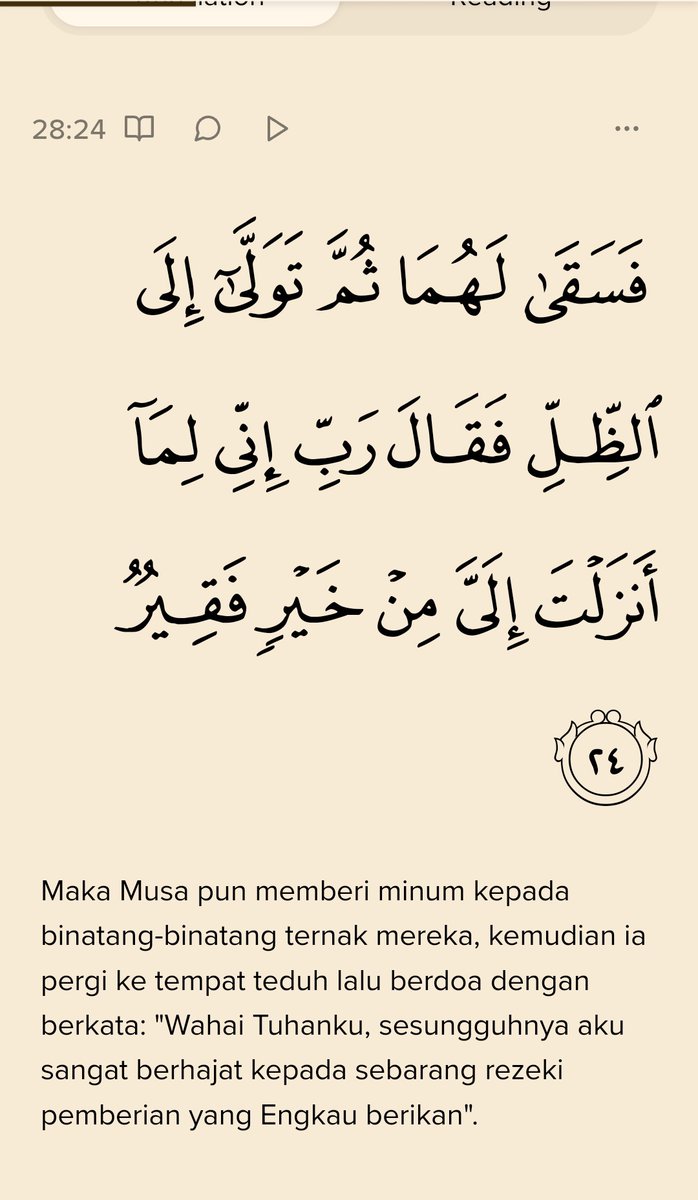 Reading
28:24
فَسَقَىٰ لَهُمَا ثُمَّ تَوَلَّىٰٓ إِلَى
ٱلظِّلِّ فَقَالَ رَبِّ إِنِّى لِمَآ
أَنزَلْتَ إِلَىَّ مِنْ خَيْرٍ فَقِيرٌ
٢٤
Maka Musa pun memberi minum kepada
binatang-binatang ternak mereka, kemudian ia
pergi ke tempat teduh lalu berdoa dengan
berkata: "Wahai Tuhanku, sesungguhnya aku
sangat berhajat kepada sebarang rezeki
pemberian yang Engkau berikan".